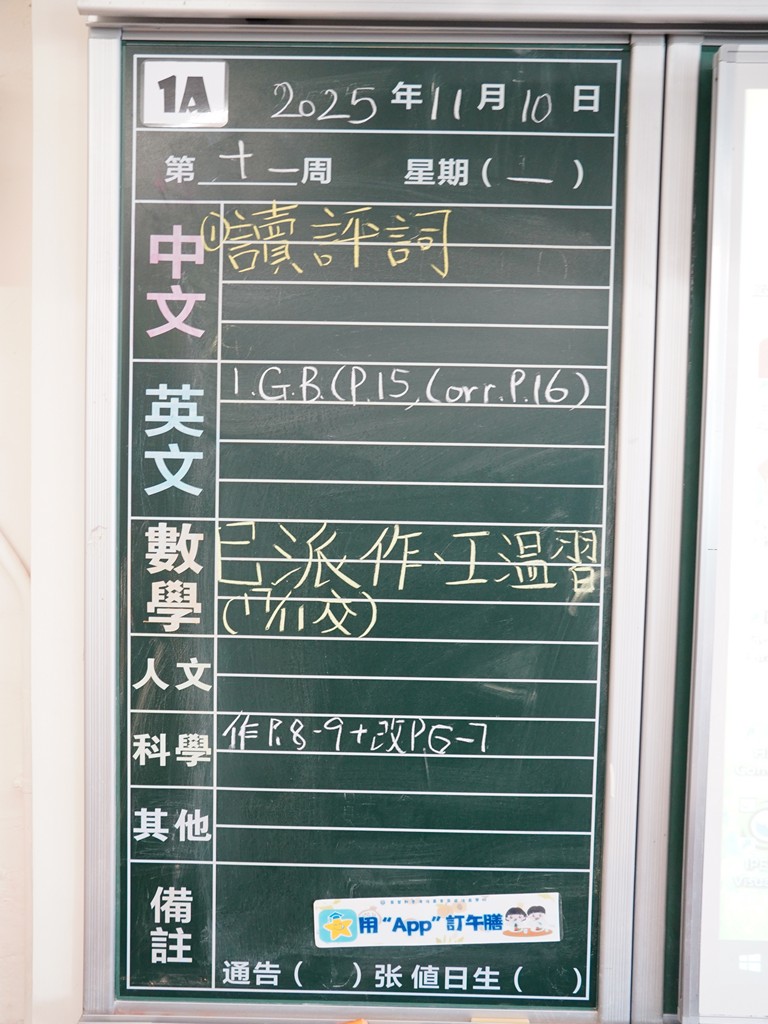 1A 2025年11月10日
第十一周 星期(一)
中文 ①讀評詞
英文 1.G.B.(P.15,Corr.P.16)
數學 已派作工溫習
(17/11交)
人文
科學 作P.8-9+改P.6-7
其他
備註
用"App"訂午膳
通告( )张 值日生( )